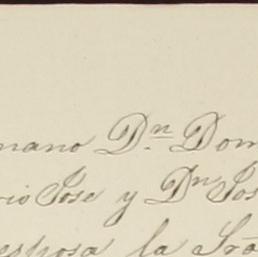 mano Dn. Dom
rio Jose y Dn Jos
esposa la Sra